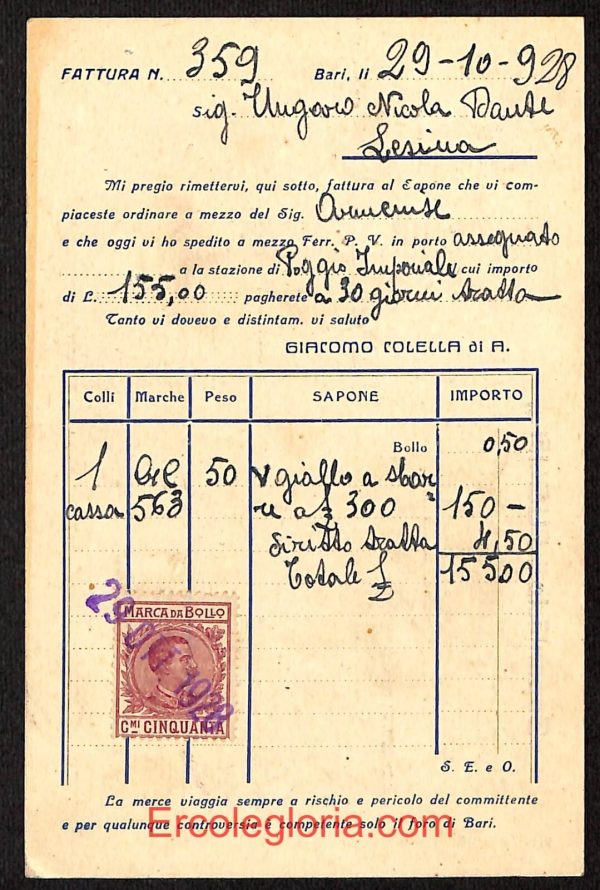 FATTURA N. 359 Bari, li 29-10-928
Sig. Ungaro Nicola Dante
Lesina
Mi pregio rimettervi, qui sotto, fattura al Sapone che vi com-
piaceste ordinare a mezzo del Sig.
e che oggi vi ho spedito a mezzo Ferr. P. V. in porto assegnato
a la stazione di Poggio Imperiale cui importo
di L. 155,00 pagherete a 30 giorni tratta
Tanto vi dovevo e distintam. vi saluto
GIACOMO COLELLA di A.
Colli Marche Peso SAPONE IMPORTO
Bollo 0,50
1 50 giallo a sbar
cassa 563 re a £ 300 150 -
diritto tratta 4,50
Totale £ 155 00
29 1928
MARCA DA BOLLO
CMI CINQUANTA
S. E. e O.
La merce viaggia sempre a rischio e pericolo del committente
e per qualunque controversia è competente solo il foro di Bari.
Ercolegloria.com